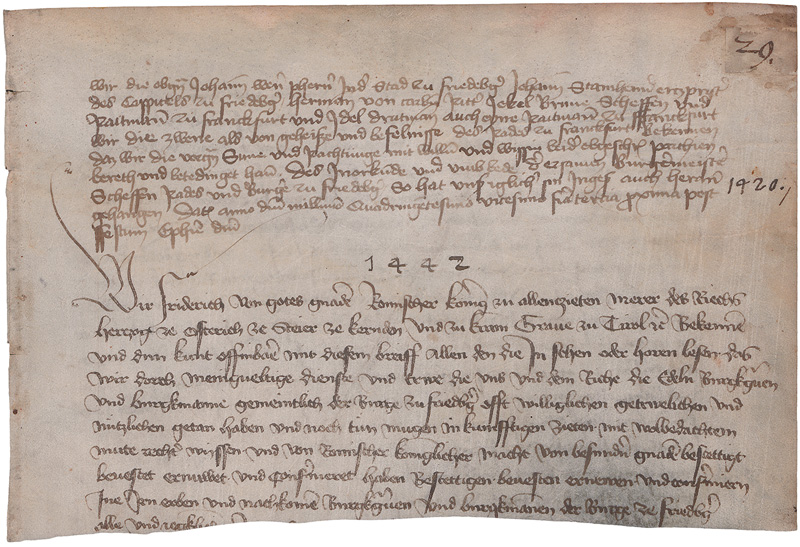 29.
wir die obgn Johann wen phern Ind Stad zu friedbg Johann Stamhem ercyprist
des Cappitels zu friedbg herman von carbn Ritt Jekel Brune Scheffen und
Raitman zu franckfurt und Idel drutman auch eyne Raitman zu ffranckfurt
wir die zwene als von geheiße und befelnisse des Rades zu franckfurt bekennen
daz wir die vorgn Sune und Rachtunge mit willn und wissen beid parthien
bereth und betedinget han Des Inorkunde und umb bede d ersamen Burgemeiste
Scheffen Rades und Burgr zu friedbg So hat unß iglich sin Ingeß auch heran
1420.
gehangen Dat anno dm millimo Quadringetesimo vicesimo fia tertia proxima post
ffestum Ephie dm
1442
Wir friderich von gotes gnade Romischer konig zu allenzieten merer des Riechs
herzog ze Osterich ze Steier ze kernden und zu krain Grave zu Tirol etc Bekenne
und dun kunt offinbare mit diesem brieff Allen den die In sehen oder horen lesen das
wir dorch menigueltige dienste und trwe die uns und dem Riche die Edeln Burgkgven
und burgkmanne gemeintlich der Burge zu friedbg offt williglichen getrwelichen und
nutzlichen getan haben und noch tun mugen in kunfftigen zieten mit wolbedachtem
mute recht wissen und von Romischer koniglicher macht von besundn gnade bestettigt
beuestet ernuwet und Confirmeret haben Bestettigen beuesten ernewen und confirmern
Ine Iren erben und nachkomen Burgkgven und burgkmanen der Burge ze friedbg
alle und